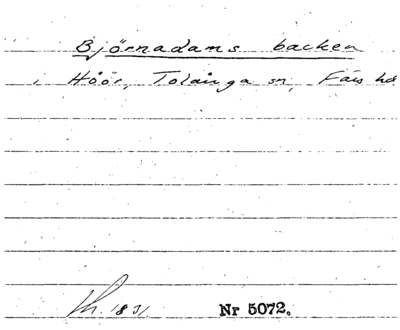 Björnadams backen
i Höör, Tolånga sn, Färs hd
Lh. 1831 Nr 5072.